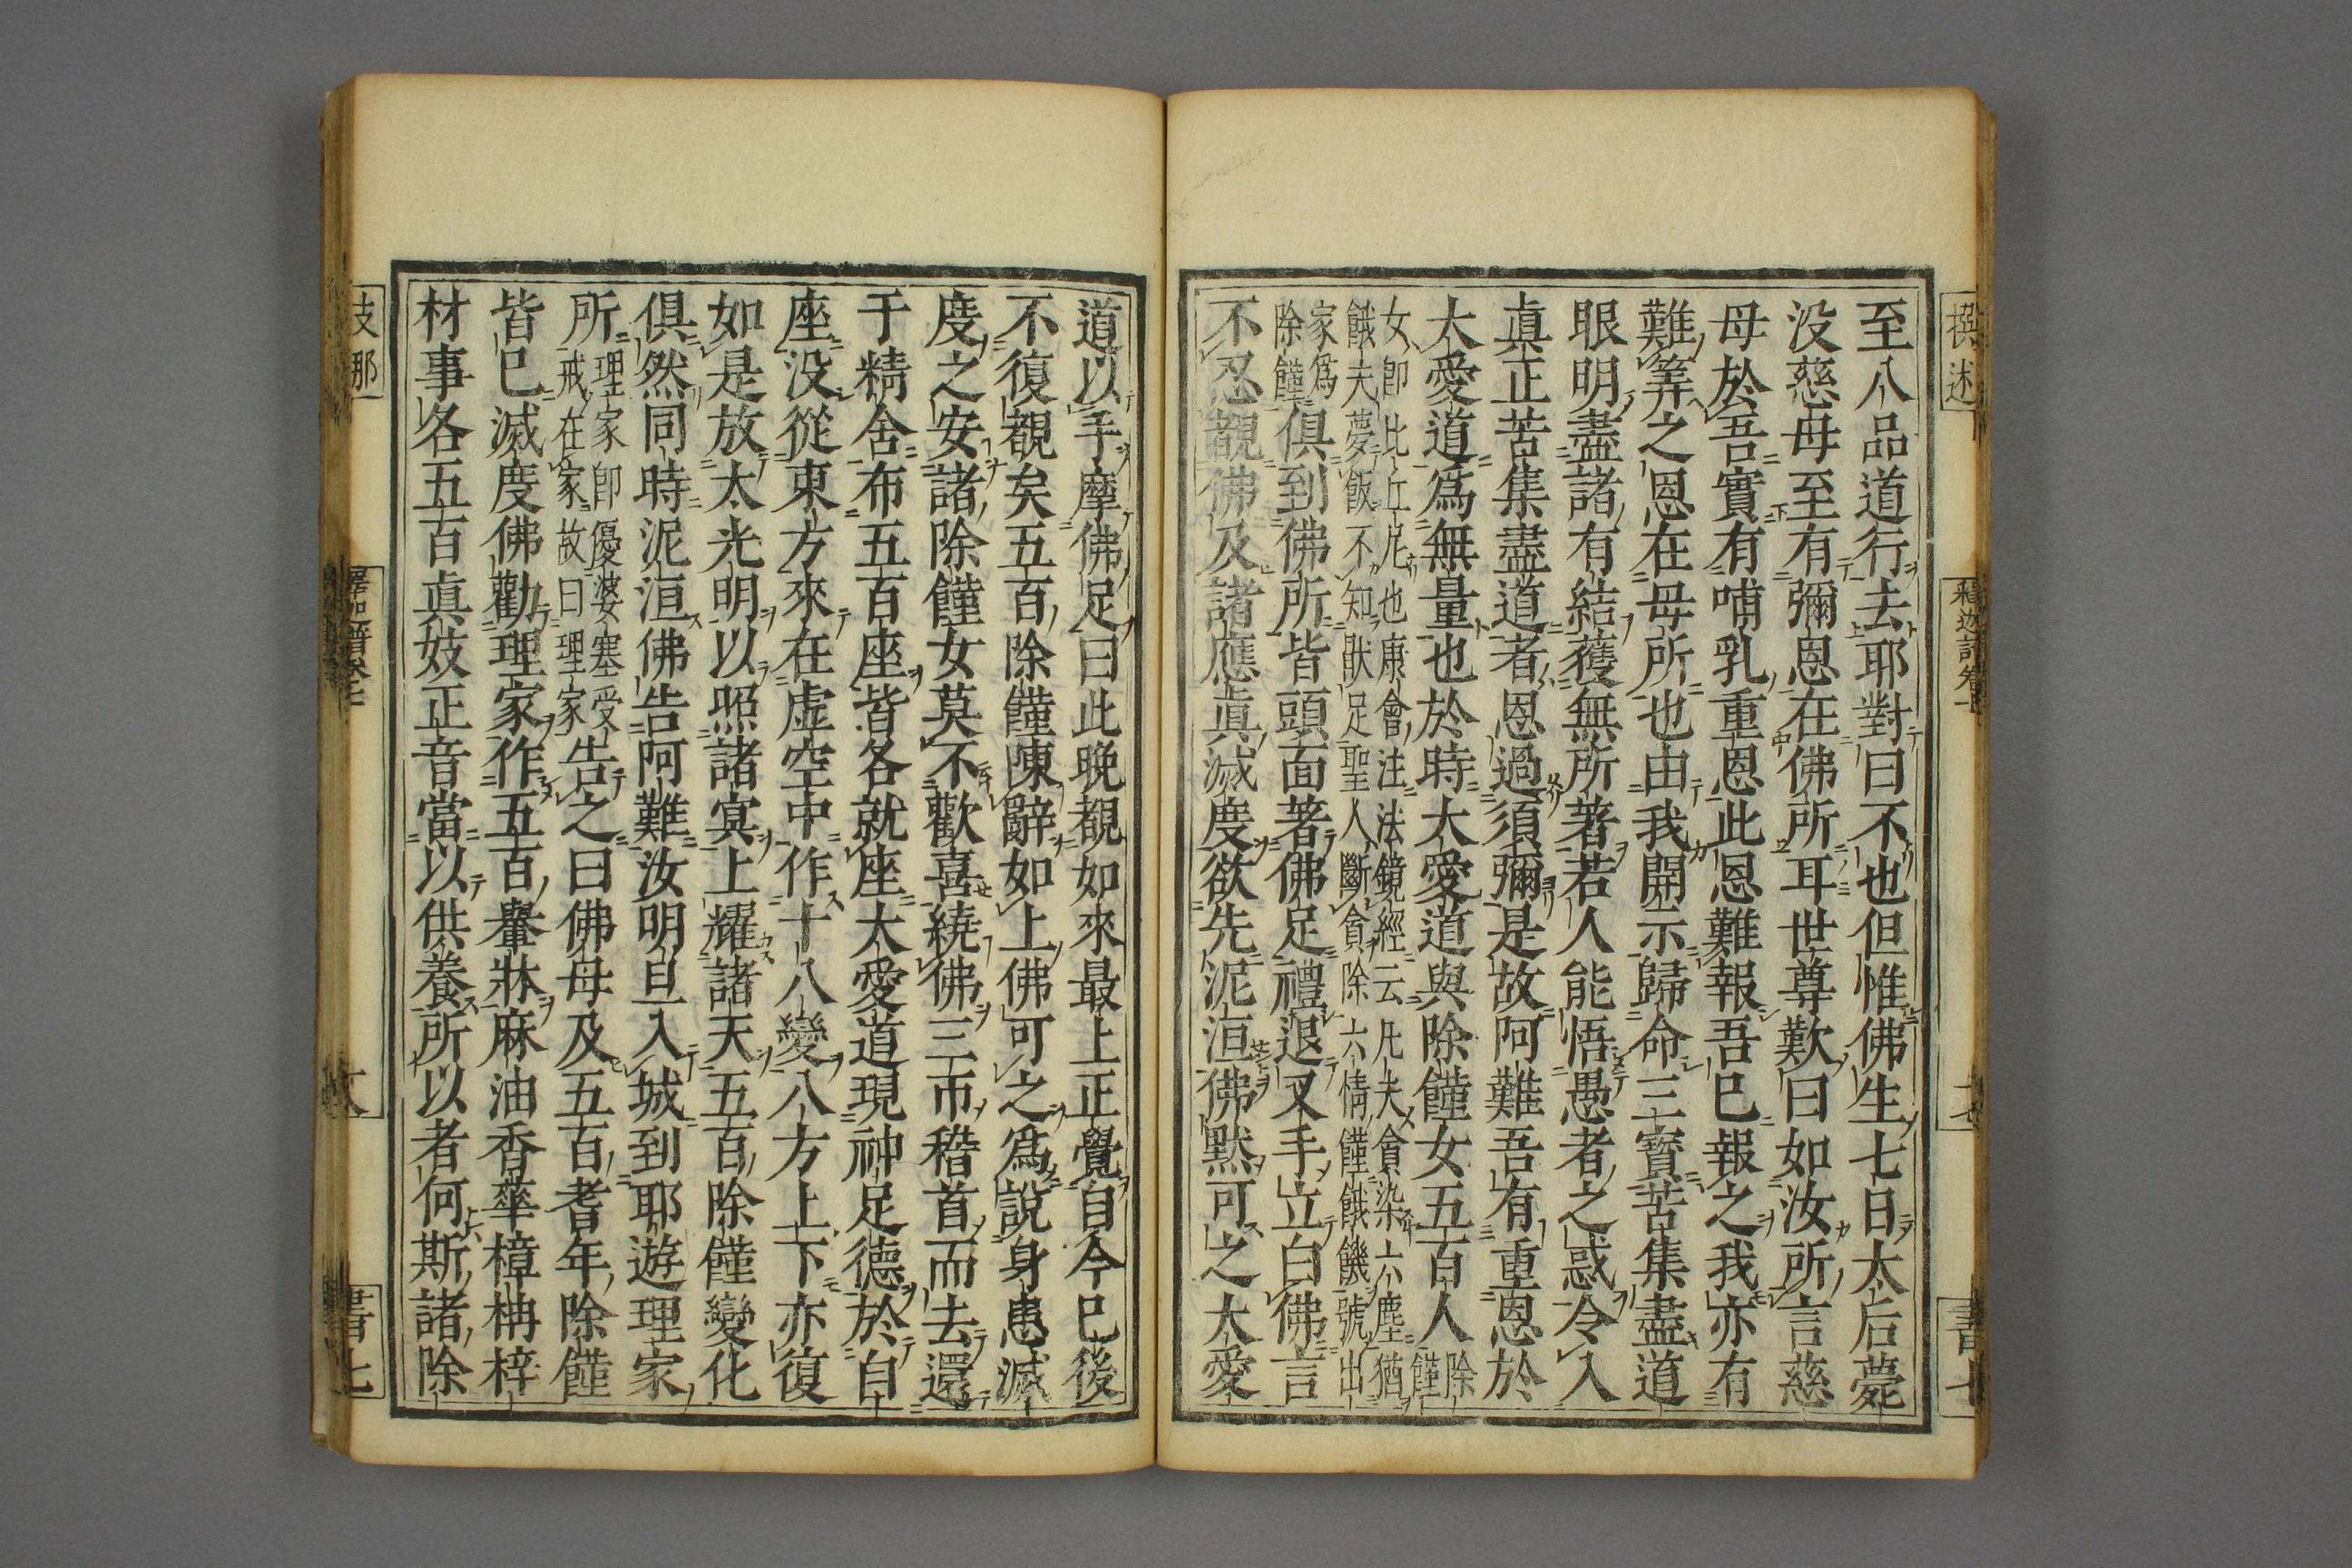 至八品道行去耶對曰不也但惟佛生七日太后薨
没慈母至有彌恩在佛所耳世尊歎曰如汝所言慈
母於吾實有哺乳重恩此恩難報吾已報之我亦有
難筭之恩在母所也由我開示歸命三寶苦集盡道
眼明盡諸有結獲無所著若人能悟愚者之惑令入
眞正苦集盡道者恩過須彌是故阿難吾有重恩於
大愛道爲無量也於時大愛道與除饉女五百人除饉
女即比丘尼也康會注法鏡經云凡夫貪染六塵猶
餓夫夢飯不知猒足聖人斷貪除六情饉餓饑號出
家爲除饉俱到佛所皆頭面著佛足禮退叉手立白佛言
不忍覩佛及諸應眞滅度欲先泥洹佛默可之大愛
道以手摩佛足曰此晩覩如來最上正覺自今已後
不復覩矣五百除饉陳辭如上佛可之爲說身患滅
度之安諸除饉女莫不歡喜繞佛三帀稽首而去還
于精舍布五百座皆各就座大愛道現神足德於自
座没從東方來在虚空中作十八變八方上下亦復
如是放大光明以照諸冥上耀諸天五百除饉變化
俱然同時泥洹佛告阿難汝明旦入城到耶遊理家
所理家即優婆塞受戒在家故曰理家告之曰佛母及五百耆年除饉
皆已滅度佛勸理家作五百轝牀麻油香華樟柟梓
材事各五百眞妓正音當以供養所以者何斯諸除
撰述
書七
支那
書七